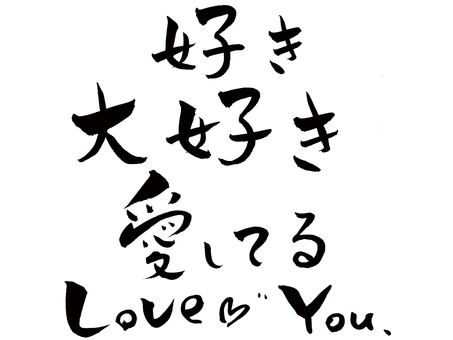 好き
大好き
愛してる
Love♡ You.